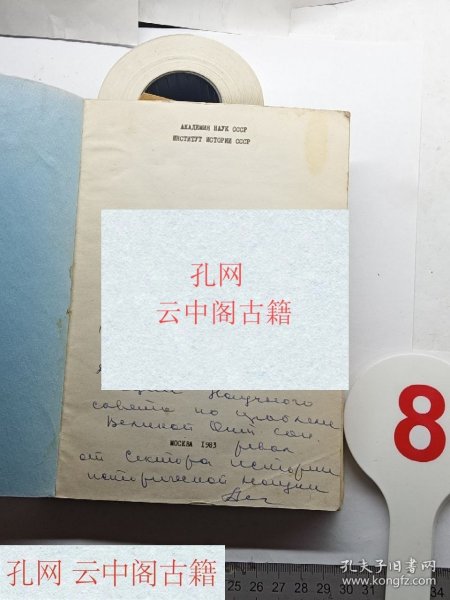 АКАДЕМИЯ НАУК СССР
ИНСТИТУТ ИСТОРИИ СССР
孔网
云中阁古籍
Научного
совета по проблеме
Великой Окт соц
МОСКВА 1983
револ
от Сектора истории
исторической
8
孔网 云中阁古籍
孔夫子旧书网
www.kongfz.com
25 26 27 28 29 30 31 32 33 34